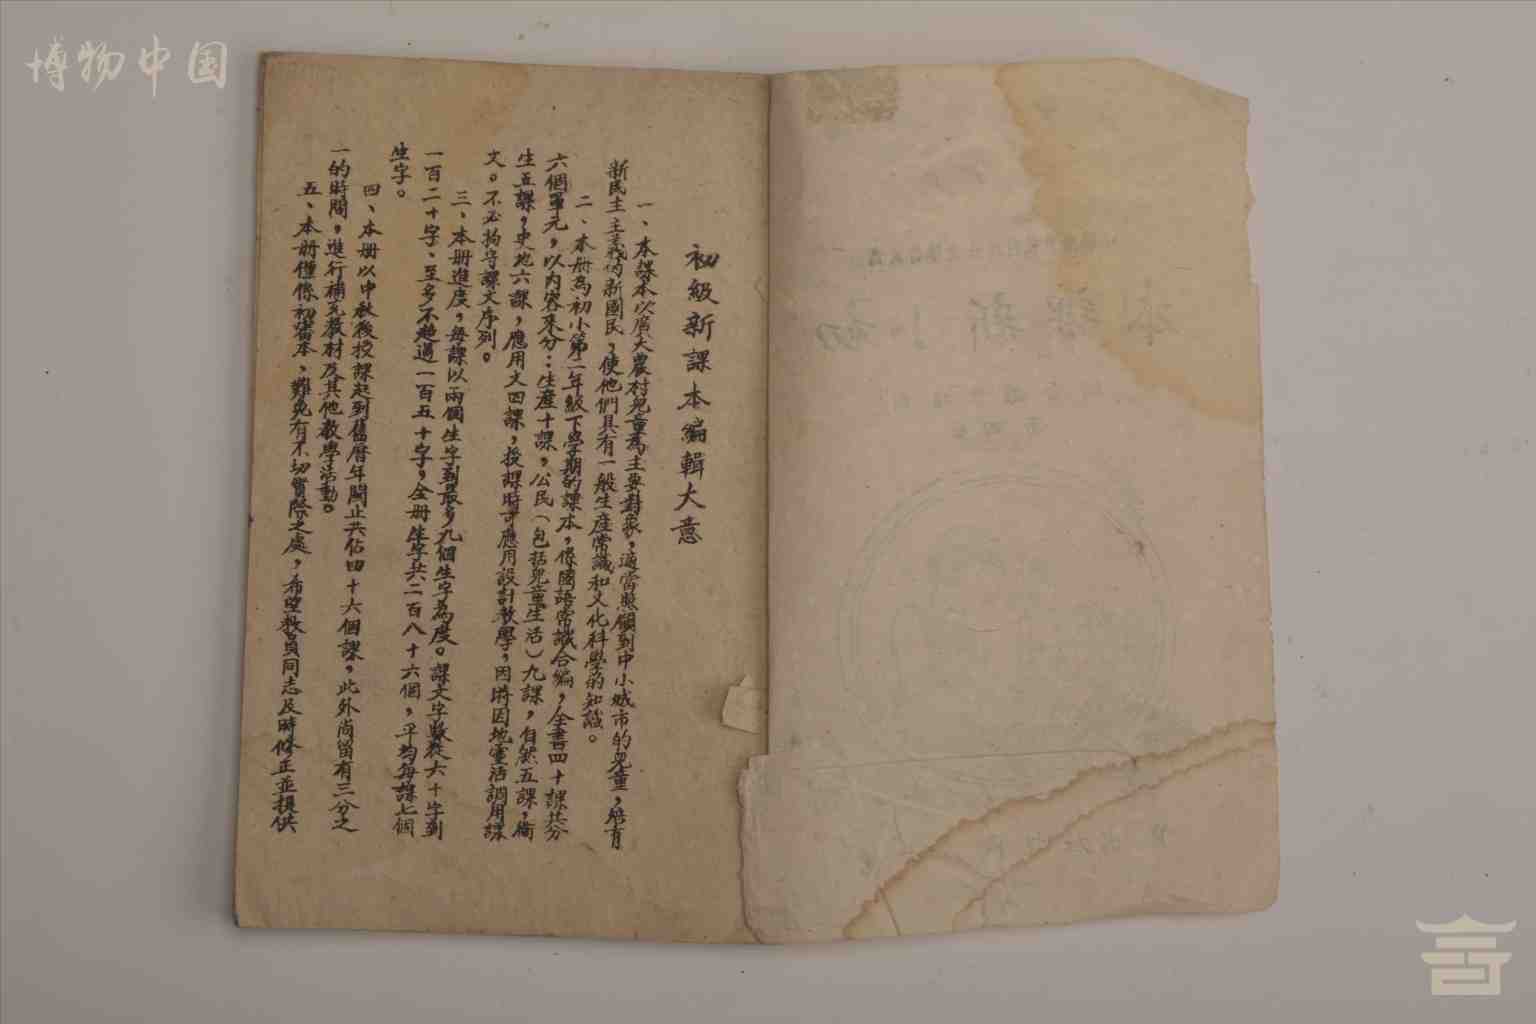 博物中国
初級新課本編輯大意
一、本課本以廣大農村兒童爲主要對象，適當照顧到中小城市的兒童，培育
新民主主義的新國民，使他們具有一般生産常識和文化科學的知識。
二、本册爲初小第二年級下學期的課本，係國語常識合編，全書四十課共分
六個單元，以内容來分：生産十課，公民（包括兒童生活）九課，自然五課，衛
生五課，史地六課，應用文四課，授課時可應用設計教學，因時因地靈活調用課
文。不必拘守課文序列。
三、本册進度，每課以兩個生字到最多九個生字爲度。課文字數從六十字到
一百二十字、至多不超過一百五十字，全册生字共二百八十六個，平均每課七個
生字。
四、本册以中秋後授課起到舊曆年關止共佔四十六個課，此外尚留有三分之
一的時間，進行補充教材及其他教學活動。
五、本册僅係初審本、難免有不切實際之處，希望教員同志及時修正並提供
本課新小初